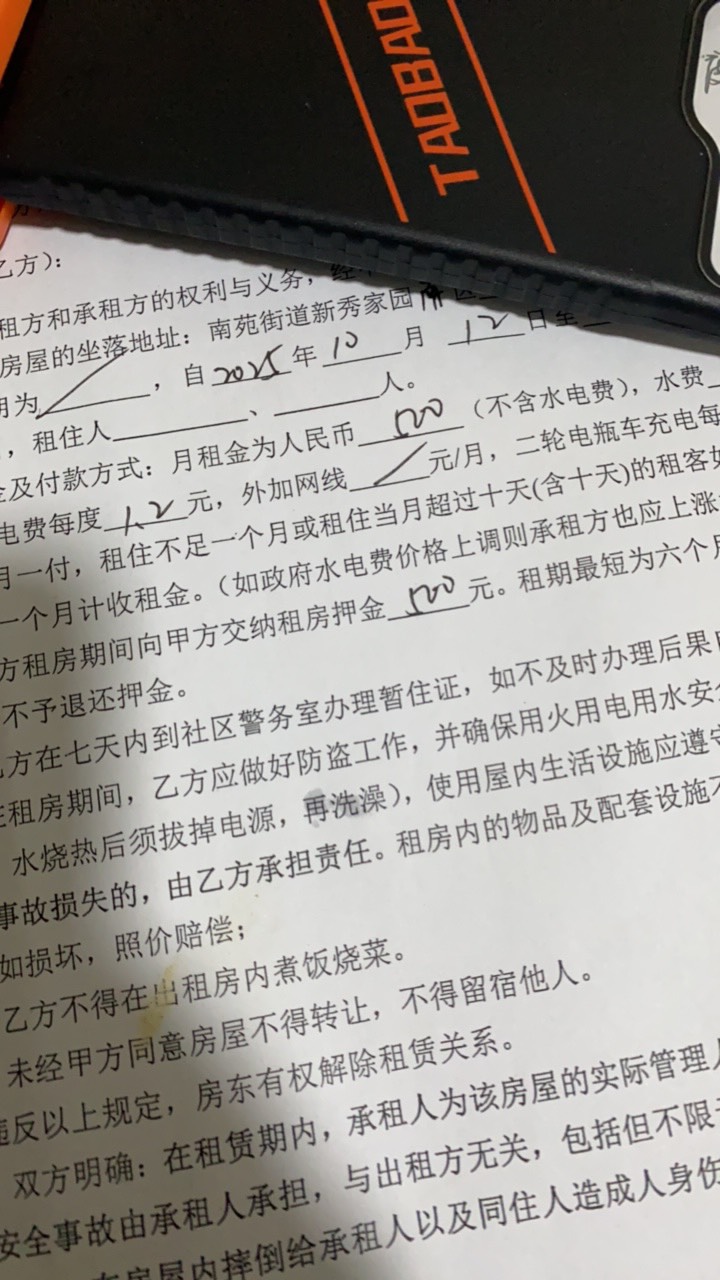 TAOBAO
乙方）：
租方和承租方的权利与义务，经
房屋的坐落地址：南苑街道新秀家园
期为 ，自2025年10月12日至
，租住人 、 人。
金及付款方式：月租金为人民币500（不含水电费），水费
电费每度1.2元，外加网线 元/月，二轮电瓶车充电每
月一付，租住不足一个月或租住当月超过十天(含十天)的租客如
一个月计收租金。（如政府水电费价格上调则承租方也应上涨
方租房期间向甲方交纳租房押金500元。租期最短为六个月
不予退还押金。
乙方在七天内到社区警务室办理暂住证，如不及时办理后果
在租房期间，乙方应做好防盗工作，并确保用火用电用水安全
水烧热后须拔掉电源，再洗澡），使用屋内生活设施应遵守
事故损失的，由乙方承担责任。租房内的物品及配套设施不
如损坏，照价赔偿；
乙方不得在出租房内煮饭烧菜。
未经甲方同意房屋不得转让，不得留宿他人。
违反以上规定，房东有权解除租赁关系。
双方明确：在租赁期内，承租人为该房屋的实际管理人
安全事故由承租人承担，与出租方无关，包括但不限
在房屋内摔倒给承租人以及同住人造成人身伤